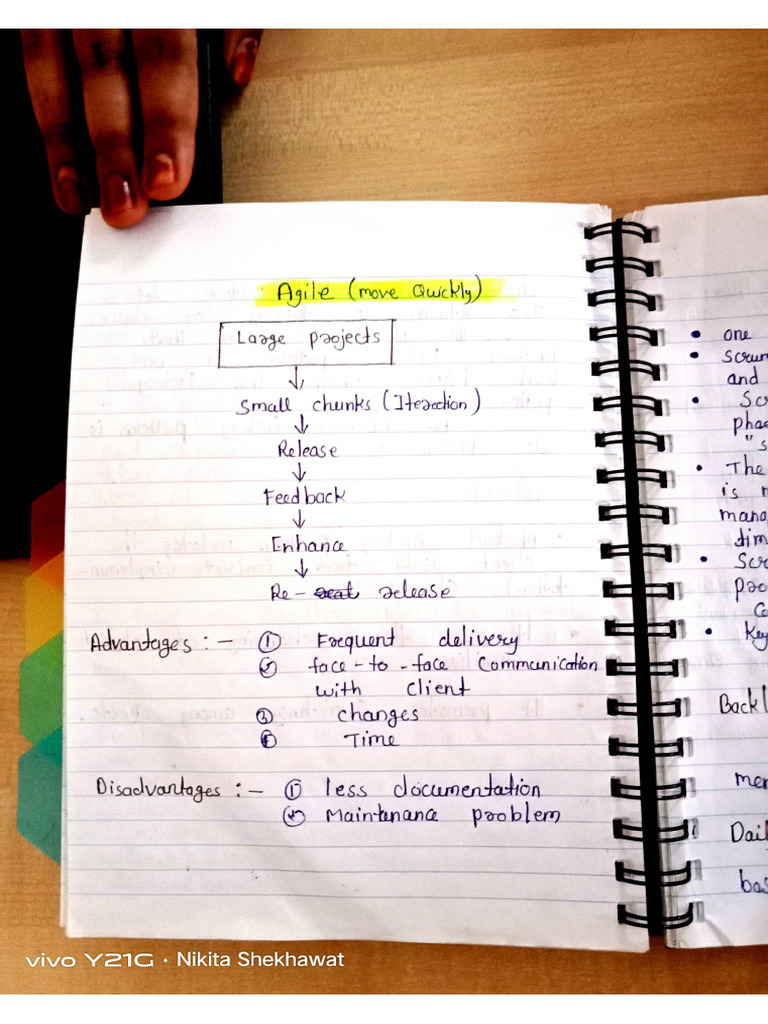 Agile (move Quickly)
Large projects
↓
Small chunks (Iteraction)
↓
Release
↓
Feedback
↓
Enhance
↓
Re- release
Advantages :- ① Frequent delivery
② face-to-face Communication
with client
③ changes
④ Time
Disadvantages :- ① less documentation
② Maintenance problem
• one
• scrum
and
• Sc
phas
"s
• The
is m
mana
tim
• Scr
pro
Co
• Key
Backl
mem
Dail
bas
vivo Y21G · Nikita Shekhawat